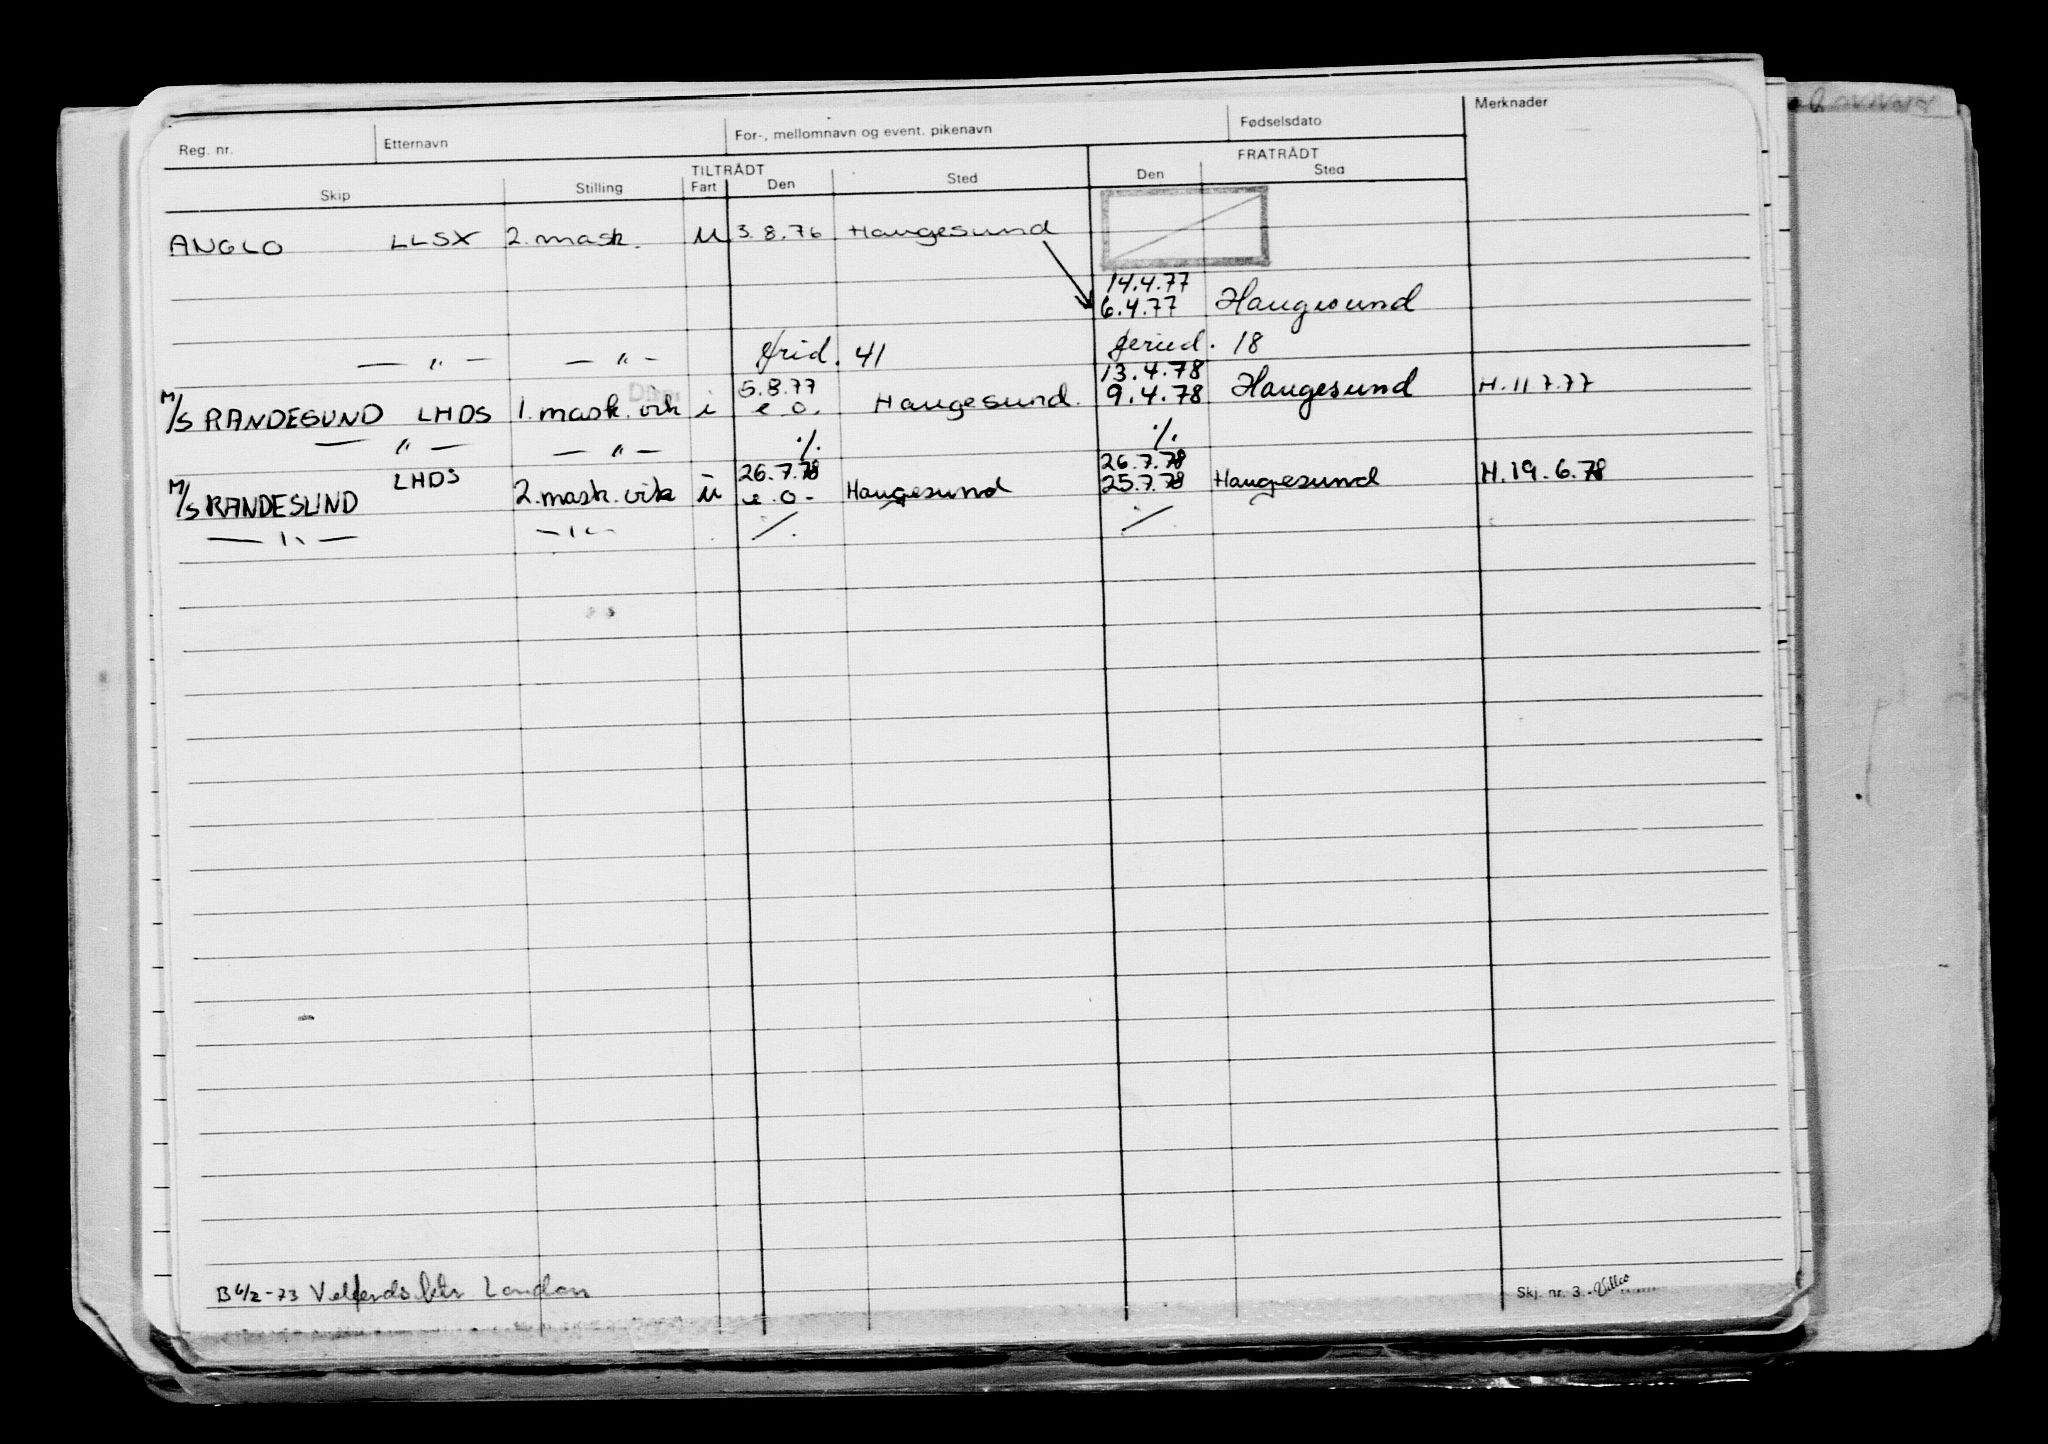 Reg. nr. Etternavn For-, mellomnavn og event. pikenavn Fødselsdato Merknader
TILTRÅDT FRATRÅDT
Skip Stilling Fart Den Sted Den Sted
ANGLO LLSX 2. mask. u 3.8.76 Haugesund
14.4.77
6.4.77 Haugesund
— " — — " — frid. 41 feried. 18
5.8.77 13.4.78
M/S RANDESUND LHDS 1. mask. vik i e.o. Haugesund. 9.4.78 Haugesund H. 11.7.77
— " — — " — ./. ./.
26.7.78 26.7.78
M/S RANDESUND LHDS 2. mask. vik u e.o- Haugesund 25.7.78 Haugesund H. 19.6.78
— " — — " — ./. ./.
B 6/2-73 Velferds ktr London
Skj. nr. 3.